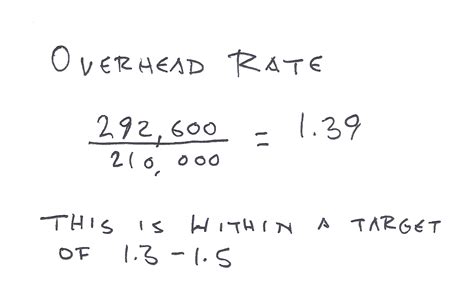 OVERHEAD RATE
292,600
210,000
= 1.39
THIS IS WITHIN A TARGET
OF 1.3 - 1.5